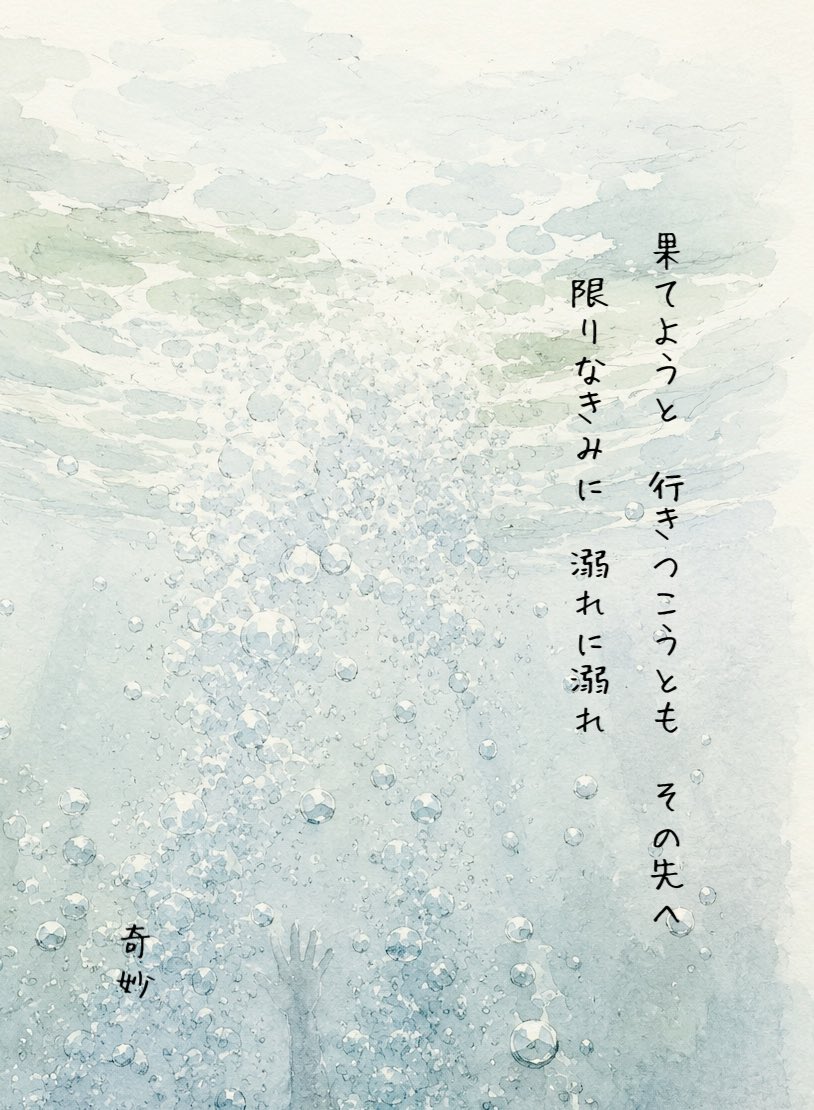 果てようと 行きつこうとも その先へ
限りなきみに 溺れに溺れ
奇妙